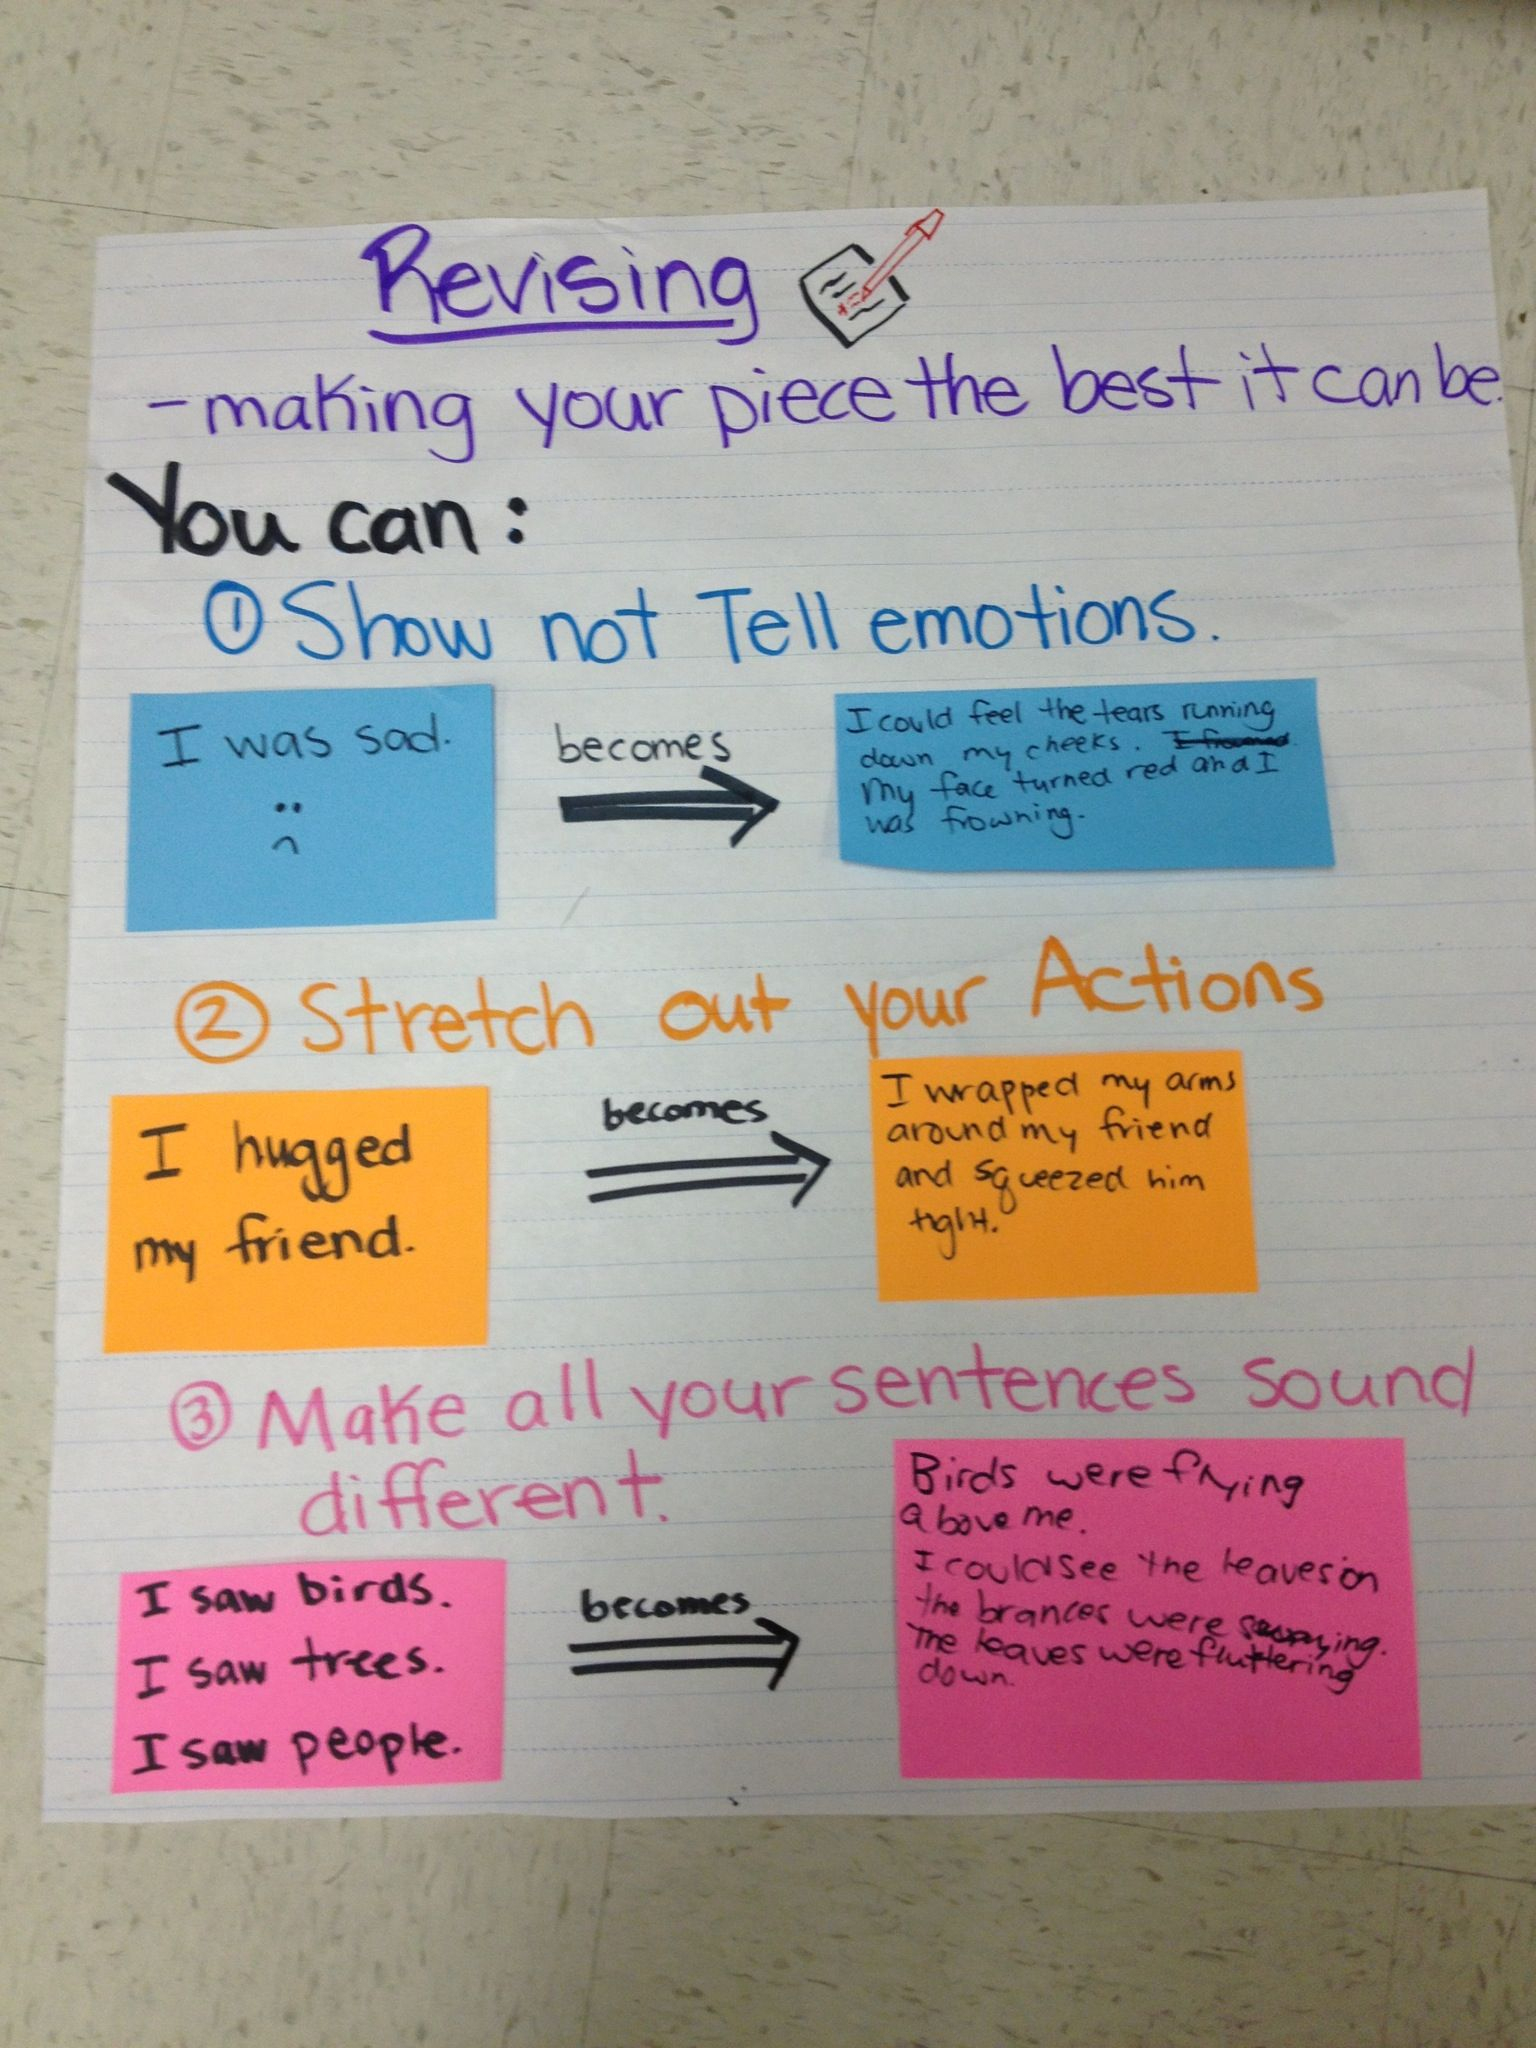 Revising
- making your piece the best it can be.
You can:
① Show not Tell emotions.
I was sad.
becomes
I could feel the tears running
down my cheeks. I frowned.
My face turned red and I
was frowning.
② Stretch out your Actions
I hugged
my friend.
becomes
I wrapped my arms
around my friend
and squeezed him
tight.
③ Make all your sentences sound
different.
I saw birds.
I saw trees.
I saw people.
becomes
Birds were flying
above me.
I could see the leaves on
the brances were
The leaves were fluttering
down.